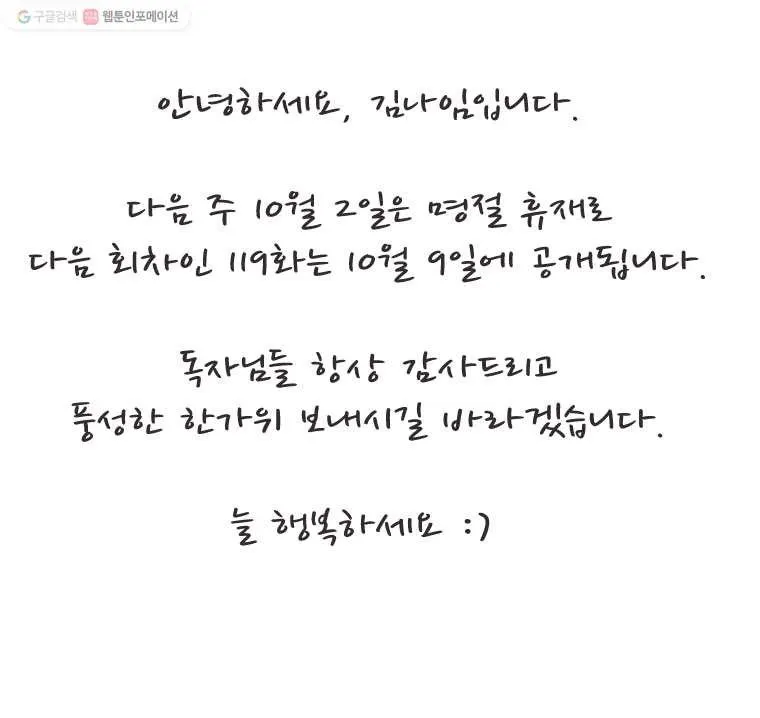 구글검색 웹툰인포메이션
안녕하세요, 김나임입니다.
다음 주 10월 2일은 명절 휴재로
다음 회차인 119화는 10월 9일에 공개됩니다.
독자님들 항상 감사드리고
풍성한 한가위 보내시길 바라겠습니다.
늘 행복하세요 :)